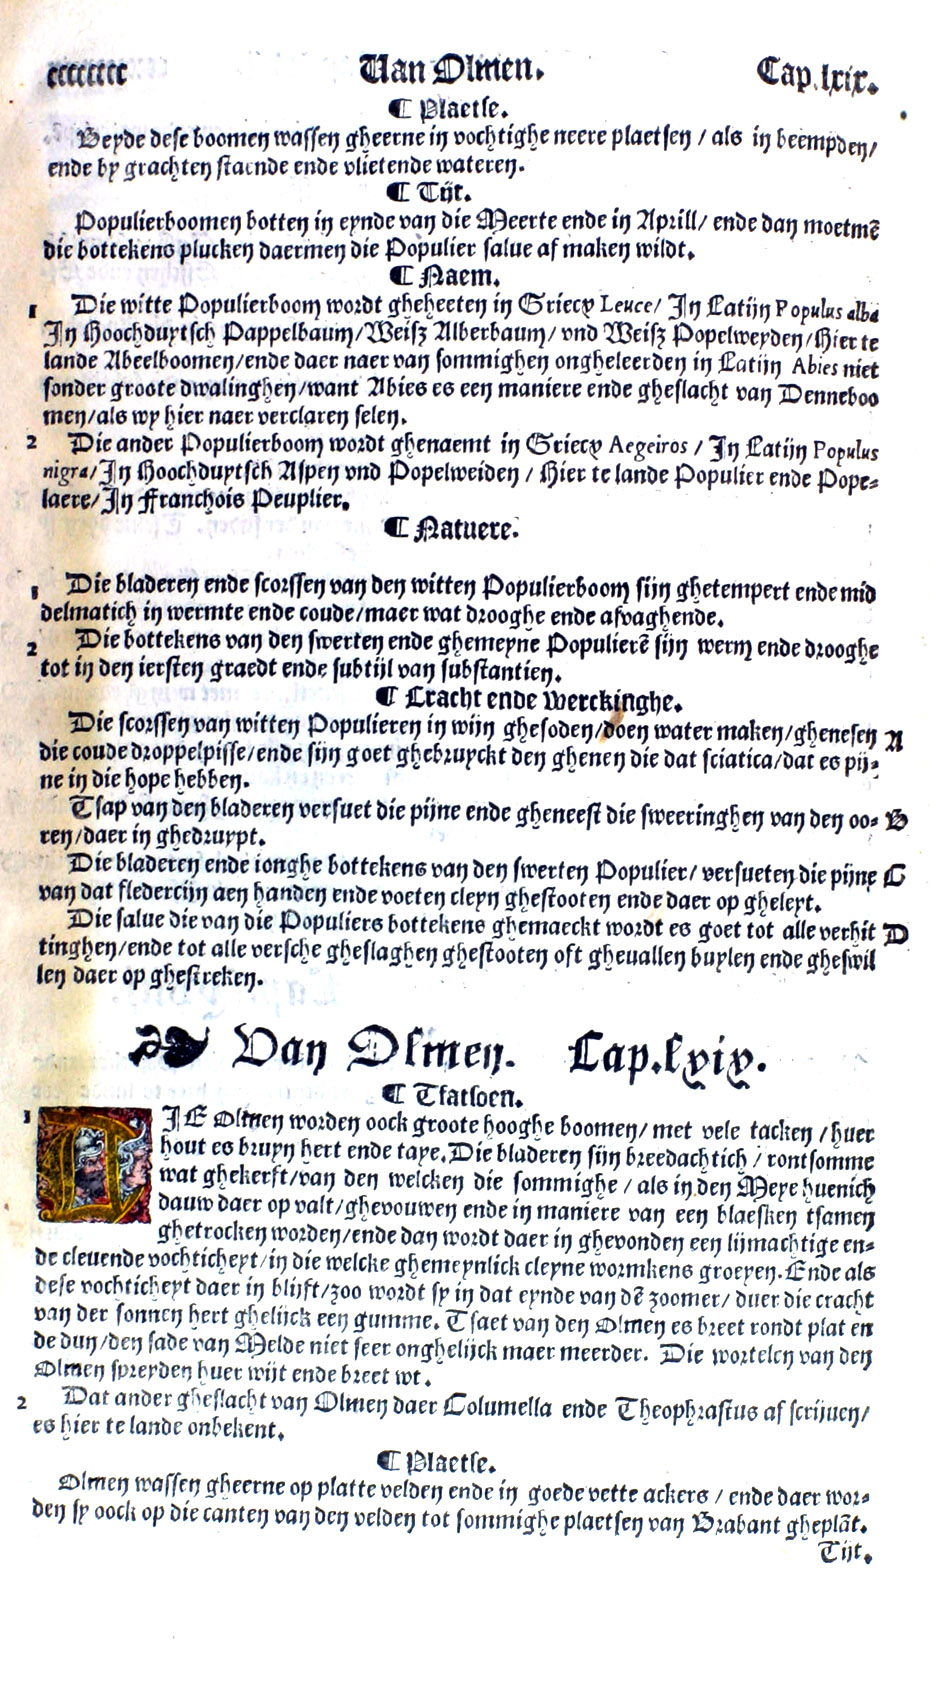 ccccccc Van Olmen. Cap.lxix.
¶ Plaetse.
Beyde dese boomen wassen gheerne in vochtighe neere plaetsen / als in beempden/
ende by grachten staende ende vlietende wateren.
¶ Tijt.
Populierboomen botten in eynde van die Meerte ende in Aprill/ ende dan moetmē
die bottekens plucken daermen die Populier salue af maken wildt.
¶ Naem.
1 Die witte Populierboom wordt gheheeten in Griecx Leuce/ In Latijn Populus alba
In Hoochduytsch Pappelbaum/Weisz Alberbaum/ vnd Weisz Popelweyden/Hier te
lande Abeelboomen/ende daer naer van sommighen ongheleerden in Latijn Abies niet
sonder groote dwalinghen/want Abies es een maniere ende gheslacht van Denneboo
men/als wy hier naer verclaren selen.
2 Die ander Populierboom wordt ghenaemt in Griecx Aegeiros / In Latijn Populus
nigra/In Hoochduytsch Aspen vnd Popelweiden / Hier te lande Populier ende Pope-
laere/In Franchois Peuplier.
¶ Natuere.
1 Die bladeren ende scorssen van den witten Populierboom sijn ghetempert ende mid
delmatich in wermte ende coude/maer wat drooghe ende afvaghende.
2 Die bottekens van den swerten ende ghemeyne Populierē sijn werm ende drooghe
tot in den iersten graedt ende subtijl van substantien.
¶ Cracht ende werckinghe.
Die scorssen van witten Populieren in wijn ghesoden/doen water maken/ghenesen A
die coude droppelpisse/ende sijn goet ghebruyckt den ghenen die dat sciatica/dat es pij-
ne in die hope hebben.
Tsap van den bladeren versuet die pijne ende gheneest die sweeringhen van den oo- B
ren/daer in ghedruypt.
Die bladeren ende ionghe bottekens van den swerten Populier/ versueten die pijne C
van dat fledercijn aen handen ende voeten cleyn ghestooten ende daer op gheleyt.
Die salue die van die Populiers bottekens ghemaeckt wordt es goet tot alle verhit D
tinghen/ende tot alle versche gheslaghen ghestooten oft gheuallen buylen ende gheswil
len daer op ghestreken.
Van Olmen. Cap.lxix.
¶ Tfatsoen.
1 DIE Olmen worden oock groote hooghe boomen/ met vele tacken / huer
hout es bruyn hert ende taye. Die bladeren sijn breedachtich / rontsomme
wat ghekerft/van den welcken die sommighe / als in den Meye huenich
dauw daer op valt/ghevouwen ende in maniere van een blaesken tsamen
ghetrocken worden/ende dan wordt daer in ghevonden een lijmachtige en-
de cleuende vochticheyt/in die welcke ghemeynlick cleyne wormkens groeyen. Ende als
dese vochticheyt daer in blijft/zoo wordt sy in dat eynde van dē zoomer/ duer die cracht
van der sonnen hert ghelijck een gumme. Tsaet van den Olmen es breet rondt plat en
de dun/den sade van Melde niet seer onghelijck maer meerder. Die wortelen van den
Olmen spreyden huer wijt ende breet wt.
2 Dat ander gheslacht van Olmen daer Columella ende Theophrastus af scrijuen/
es hier te lande onbekent.
¶ Plaetse.
Olmen wassen gheerne op platte velden ende in goede vette ackers / ende daer wor-
den sy oock op die canten van den velden tot sommighe plaetsen van Brabant gheplāt.
Tijt.